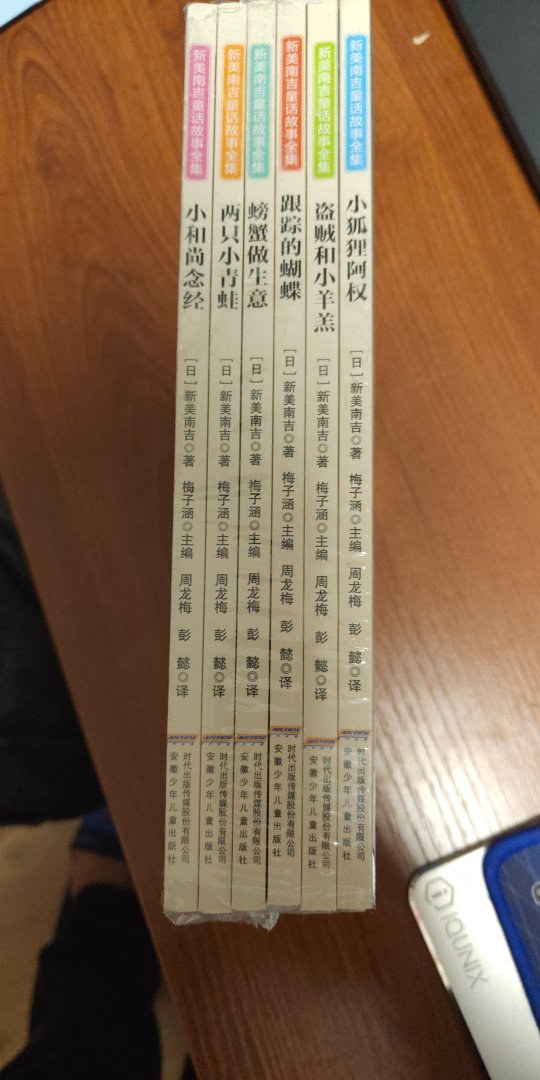 新美南吉童话故事全集
小和尚念经
[日]新美南吉◎著 梅子涵◎主编 周龙梅 彭懿◎译
时代出版传媒股份有限公司
安徽少年儿童出版社
新美南吉童话故事全集
两只小青蛙
[日]新美南吉◎著 梅子涵◎主编 周龙梅 彭懿◎译
时代出版传媒股份有限公司
安徽少年儿童出版社
新美南吉童话故事全集
螃蟹做生意
[日]新美南吉◎著 梅子涵◎主编 周龙梅 彭懿◎译
时代出版传媒股份有限公司
安徽少年儿童出版社
新美南吉童话故事全集
跟踪的蝴蝶
[日]新美南吉◎著 梅子涵◎主编 周龙梅 彭懿◎译
时代出版传媒股份有限公司
安徽少年儿童出版社
新美南吉童话故事全集
盗贼和小羊羔
[日]新美南吉◎著 梅子涵◎主编 周龙梅 彭懿◎译
时代出版传媒股份有限公司
安徽少年儿童出版社
新美南吉童话故事全集
小狐狸阿权
[日]新美南吉◎著 梅子涵◎主编 周龙梅 彭懿◎译
时代出版传媒股份有限公司
安徽少年儿童出版社
IQUNIX